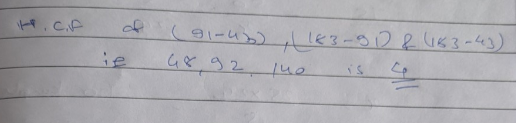 H.C.F of (91-43), (183-91) & (183-43)
ie 48, 92, 140 is 4